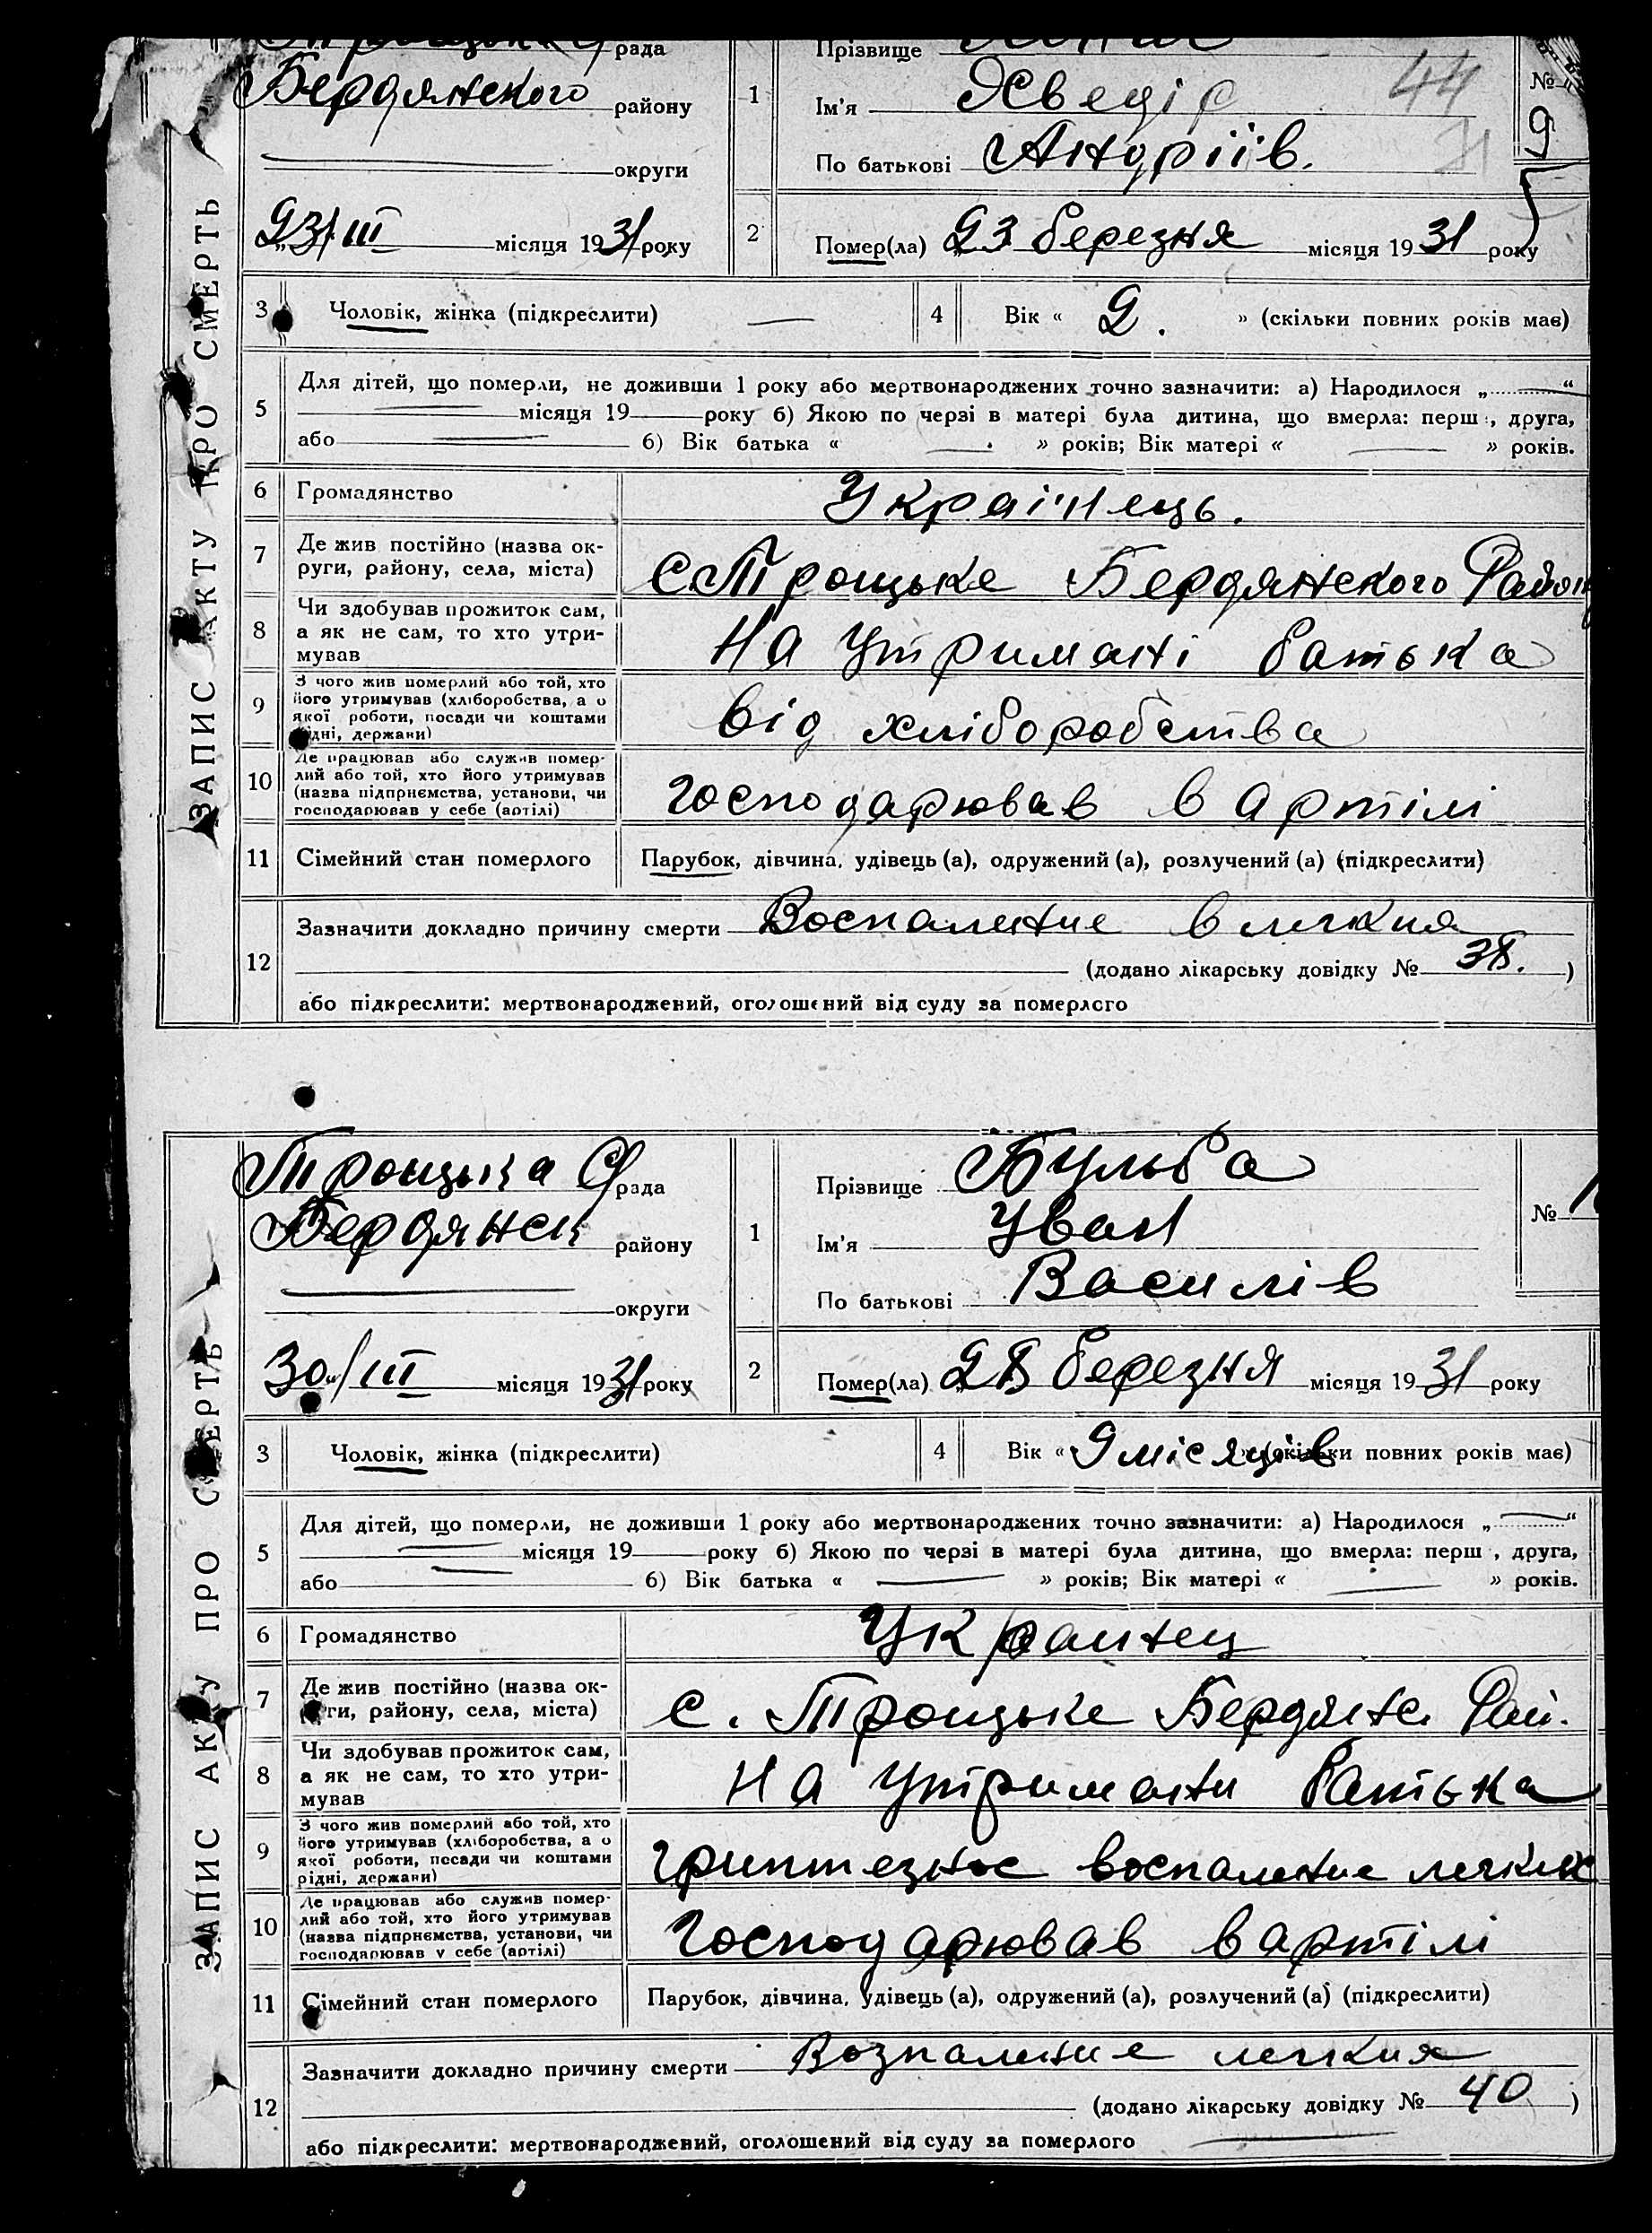 ЗАПИС АКТУ ПРО СМЕРТЬ
рада
Бердянского району
округи
23/III місяця 1931 року
1
Прізвище
Ім'я Хведір
По батькові Андріїв.
44
31
№
9
2
Помер(ла) „23 березня місяця 1931 року
3 Чоловік, жінка (підкреслити)
4 Вік « 2. » (скільки повних років має)
5
Для дітей, що померли, не доживши 1 року або мертвонароджених точно зазначити: а) Народилося „ “
місяця 19 року б) Якою по черзі в матері була дитина, що вмерла: перш , друга,
або б) Вік батька « » років; Вік матері « » років.
6 Громадянство Украінець.
7 Де жив постійно (назва ок-
руги, району, села, міста)
с. Троцьке Бердянского Район
8 Чи здобував прожиток сам,
а як не сам, то хто утри-
мував
на утримані батька
9 З чого жив померлий або той, хто
його утримував (хліборобства, а о
якої роботи, посади чи коштами
рідні, держави)
від хліборобства
10 Де працював або служив помер-
лий або той, хто його утримував
(назва підприємства, установи, чи
господарював у себе (артілі)
господарював в артілі
11 Сімейний стан померлого Парубок, дівчина, удівець (а), одружений (а), розлучений (а) (підкреслити)
12 Зазначити докладно причину смерти Воспаление в легкия
(додано лікарську довідку № 38. )
або підкреслити: мертвонароджений, оголошений від суду за померлого
ЗАПИС АКТУ ПРО СМЕРТЬ
Троцька С/рада
Бердянск району
округи
30/III місяця 1931 року
1
Прізвище Бульба
Ім'я Уван
По батькові Василів
№
2
Помер(ла) „28 березня місяця 1931 року
3 Чоловік, жінка (підкреслити)
4 Вік « 9 місяців » (скільки повних років має)
5
Для дітей, що померли, не доживши 1 року або мертвонароджених точно зазначити: а) Народилося „ “
місяця 19 року б) Якою по черзі в матері була дитина, що вмерла: перш , друга,
або б) Вік батька « » років; Вік матері « » років.
6 Громадянство Украинец
7 Де жив постійно (назва ок-
руги, району, села, міста)
с. Троцьке Бердянс. Рай.
8 Чи здобував прожиток сам,
а як не сам, то хто утри-
мував
на утримани батька
9 З чого жив померлий або той, хто
його утримував (хліборобства, а о
якої роботи, посади чи коштами
рідні, держави)
воспаление легких
10 Де працював або служив помер-
лий або той, хто його утримував
(назва підприємства, установи, чи
господарював у себе (артілі)
господарював в артілі
11 Сімейний стан померлого Парубок, дівчина, удівець (а), одружений (а), розлучений (а) (підкреслити)
12 Зазначити докладно причину смерти Возпаление легкия
(додано лікарську довідку № 40 )
або підкреслити: мертвонароджений, оголошений від суду за померлого